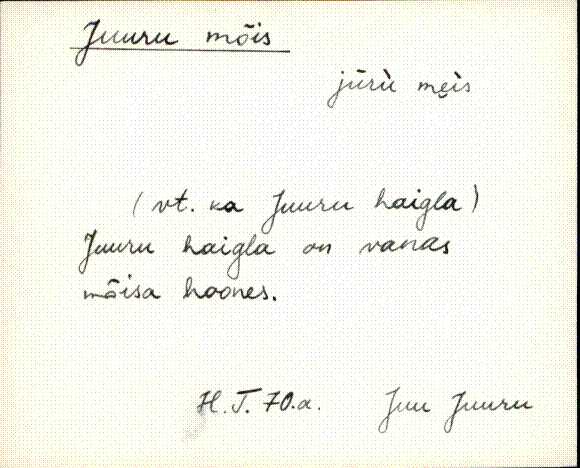 Juuru mõis
jūrù mẹìs
(vt. ka Juuru haigla)
Juuru haigla on vanas
mõisa hoones.
H.T. 70.a. Juu Juuru